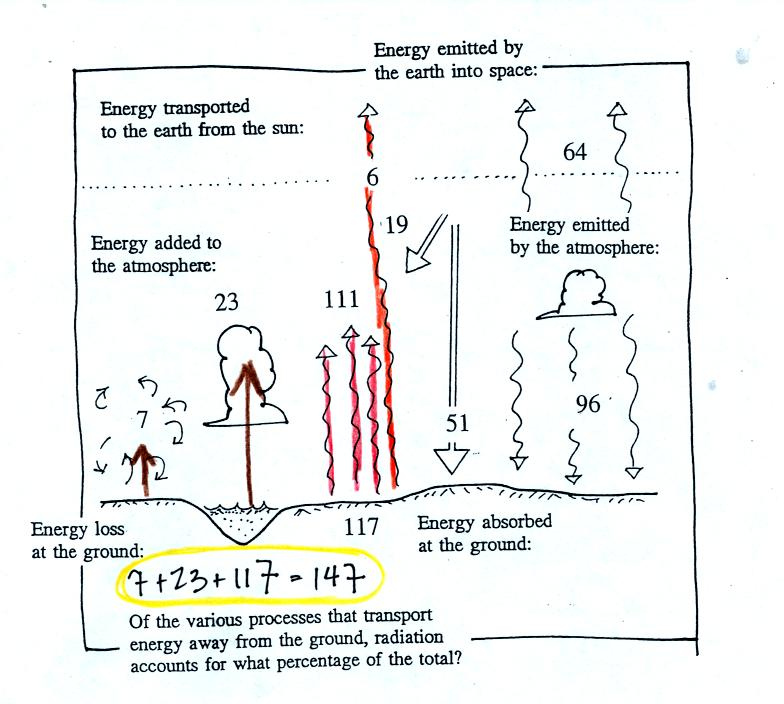 Energy emitted by
the earth into space:
Energy transported
to the earth from the sun:
64
6
19
Energy added to
the atmosphere:
Energy emitted
by the atmosphere:
23
111
96
7
51
Energy loss
at the ground:
117
Energy absorbed
at the ground:
7+23+117=147
Of the various processes that transport
energy away from the ground, radiation
accounts for what percentage of the total?